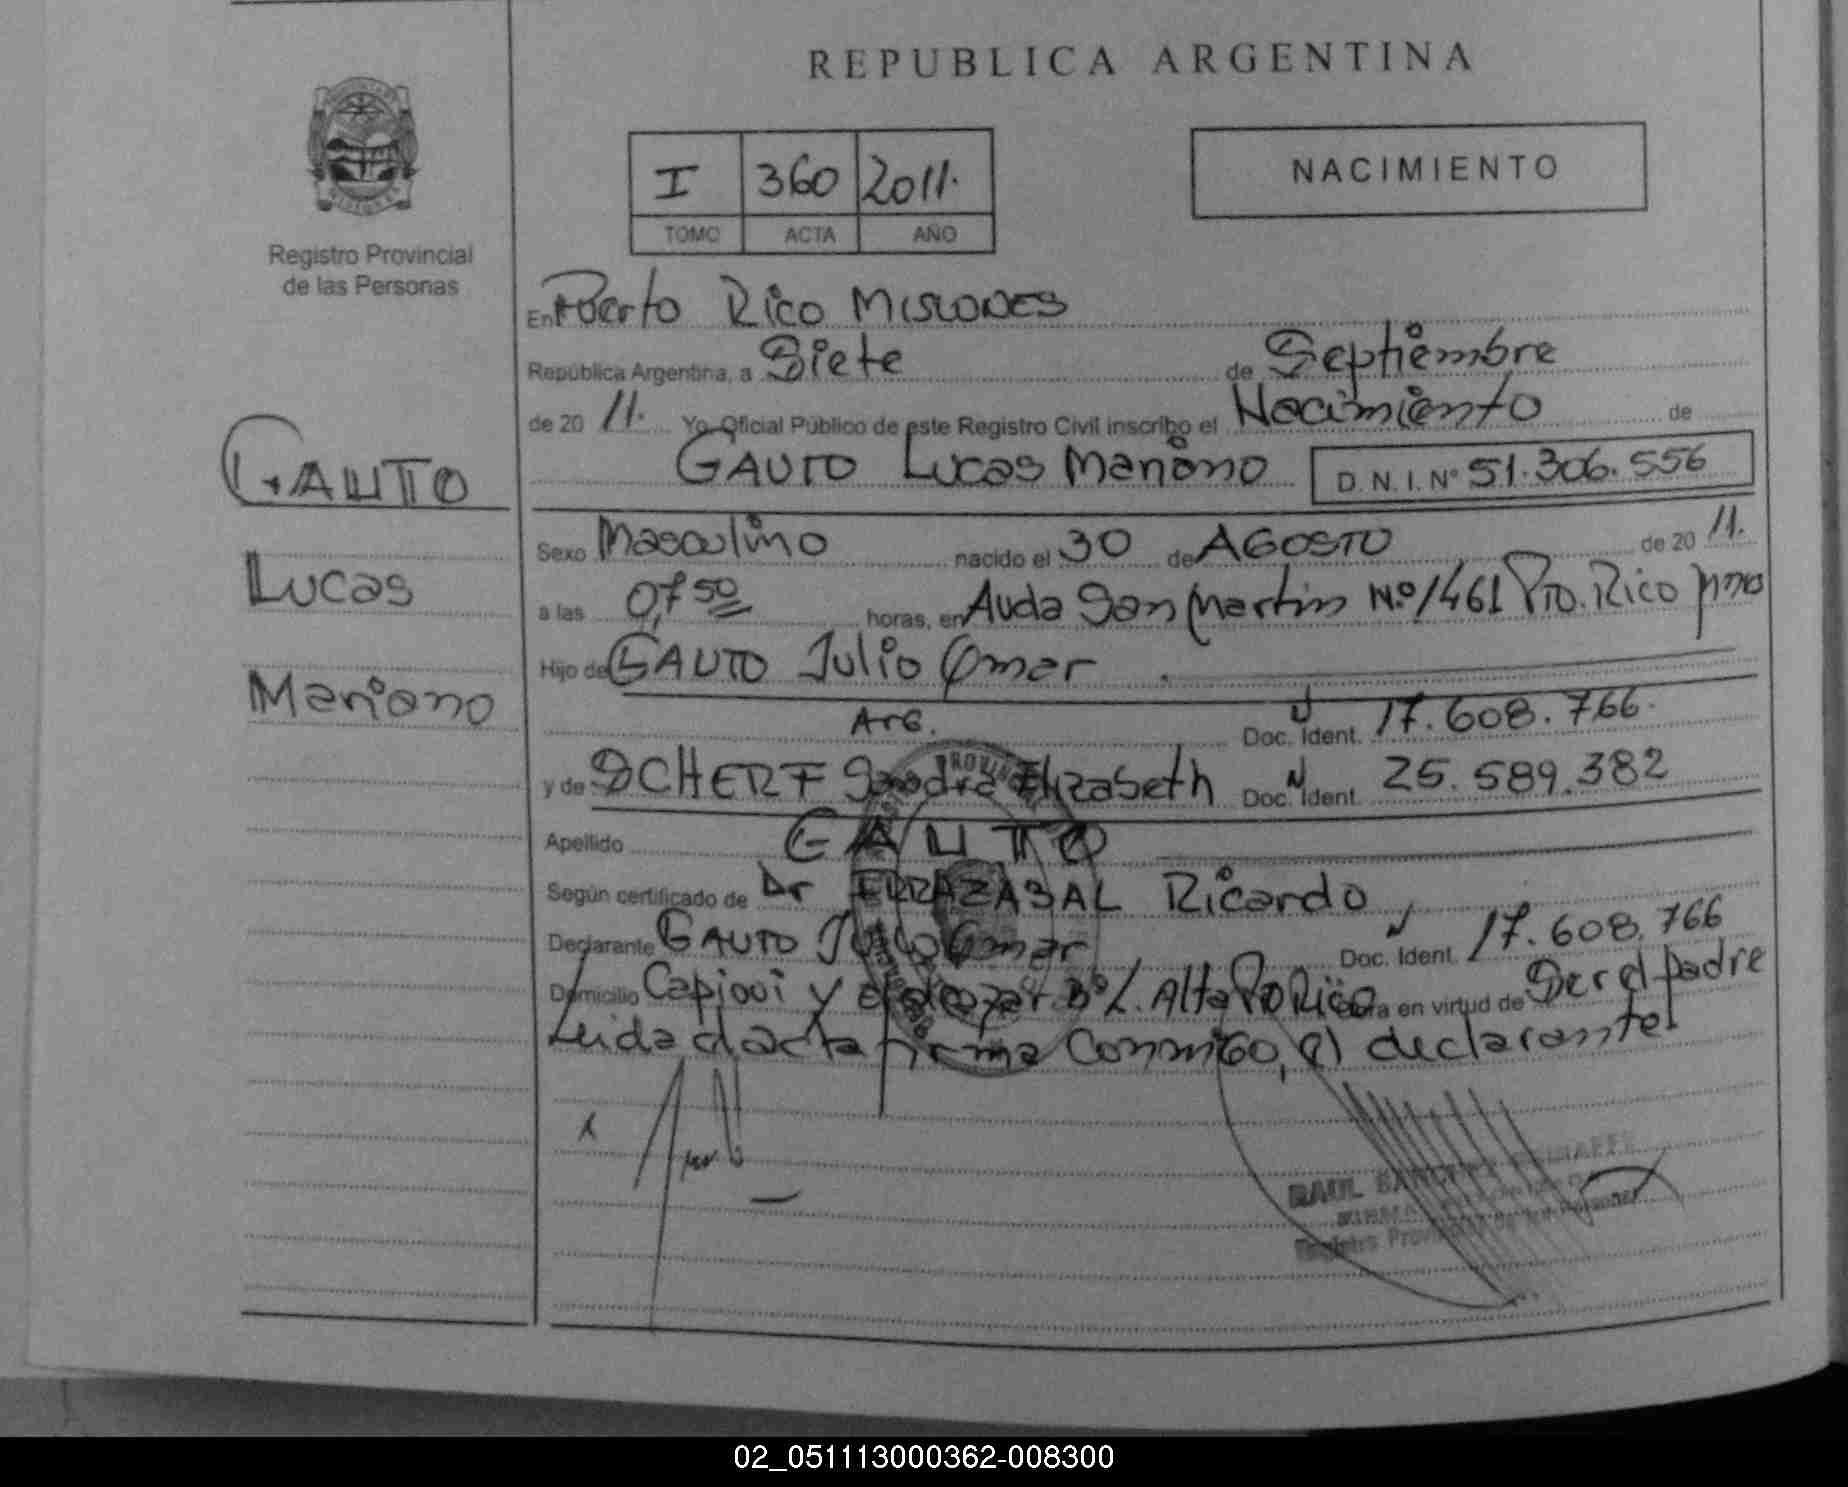 REPUBLICA ARGENTINA
NACIMIENTO
I 360 2011.
TOMO ACTA AÑO
Registro Provincial
de las Personas
GAUTO
Lucas
Mariano
En Puerto Rico Misiones
República Argentina, a Siete de Septiembre
de 20 11. Yo, Oficial Público de este Registro Civil inscribo el Nacimiento de
GAUTO Lucas Mariano D. N. I. N° 51.306.556
Sexo Masculino nacido el 30 de AGOSTO de 20 11.
a las 07,50 horas, en Avda San Martin N.º 1461 Pto. Rico Mnes
Hijo de GAUTO Julio Omar
Arg. Doc. Ident. 17.608.766.
y de SCHERF Sandra Elizabeth Doc. Ident. 25.589.382
Apellido GAUTO
Según certificado de Dr ERRAZABAL Ricardo
Declarante GAUTO Julio Omar Doc. Ident. 17.608.766
Domicilio Capiovi y B° L. Alta Pto Rico en virtud de Ser el padre
Leida el acta firma conmigo, el declarante
x
RAUL
Registro
02_051113000362-008300